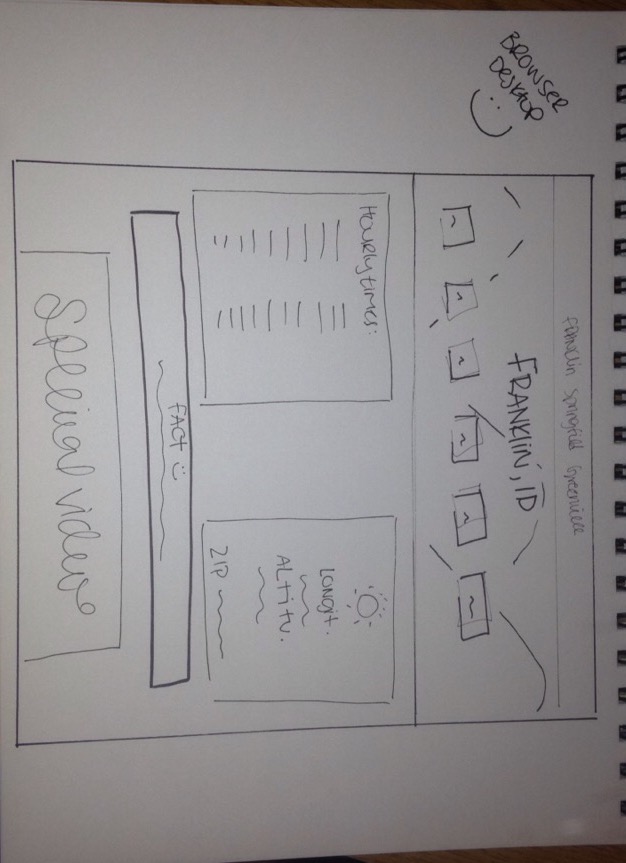 BROWSER
DESKTOP
Franklin Springfield Greenville
FRANKLIN, ID
Hourly times:
LONGIT.
ALTITU.
ZIP
FACT
Special video